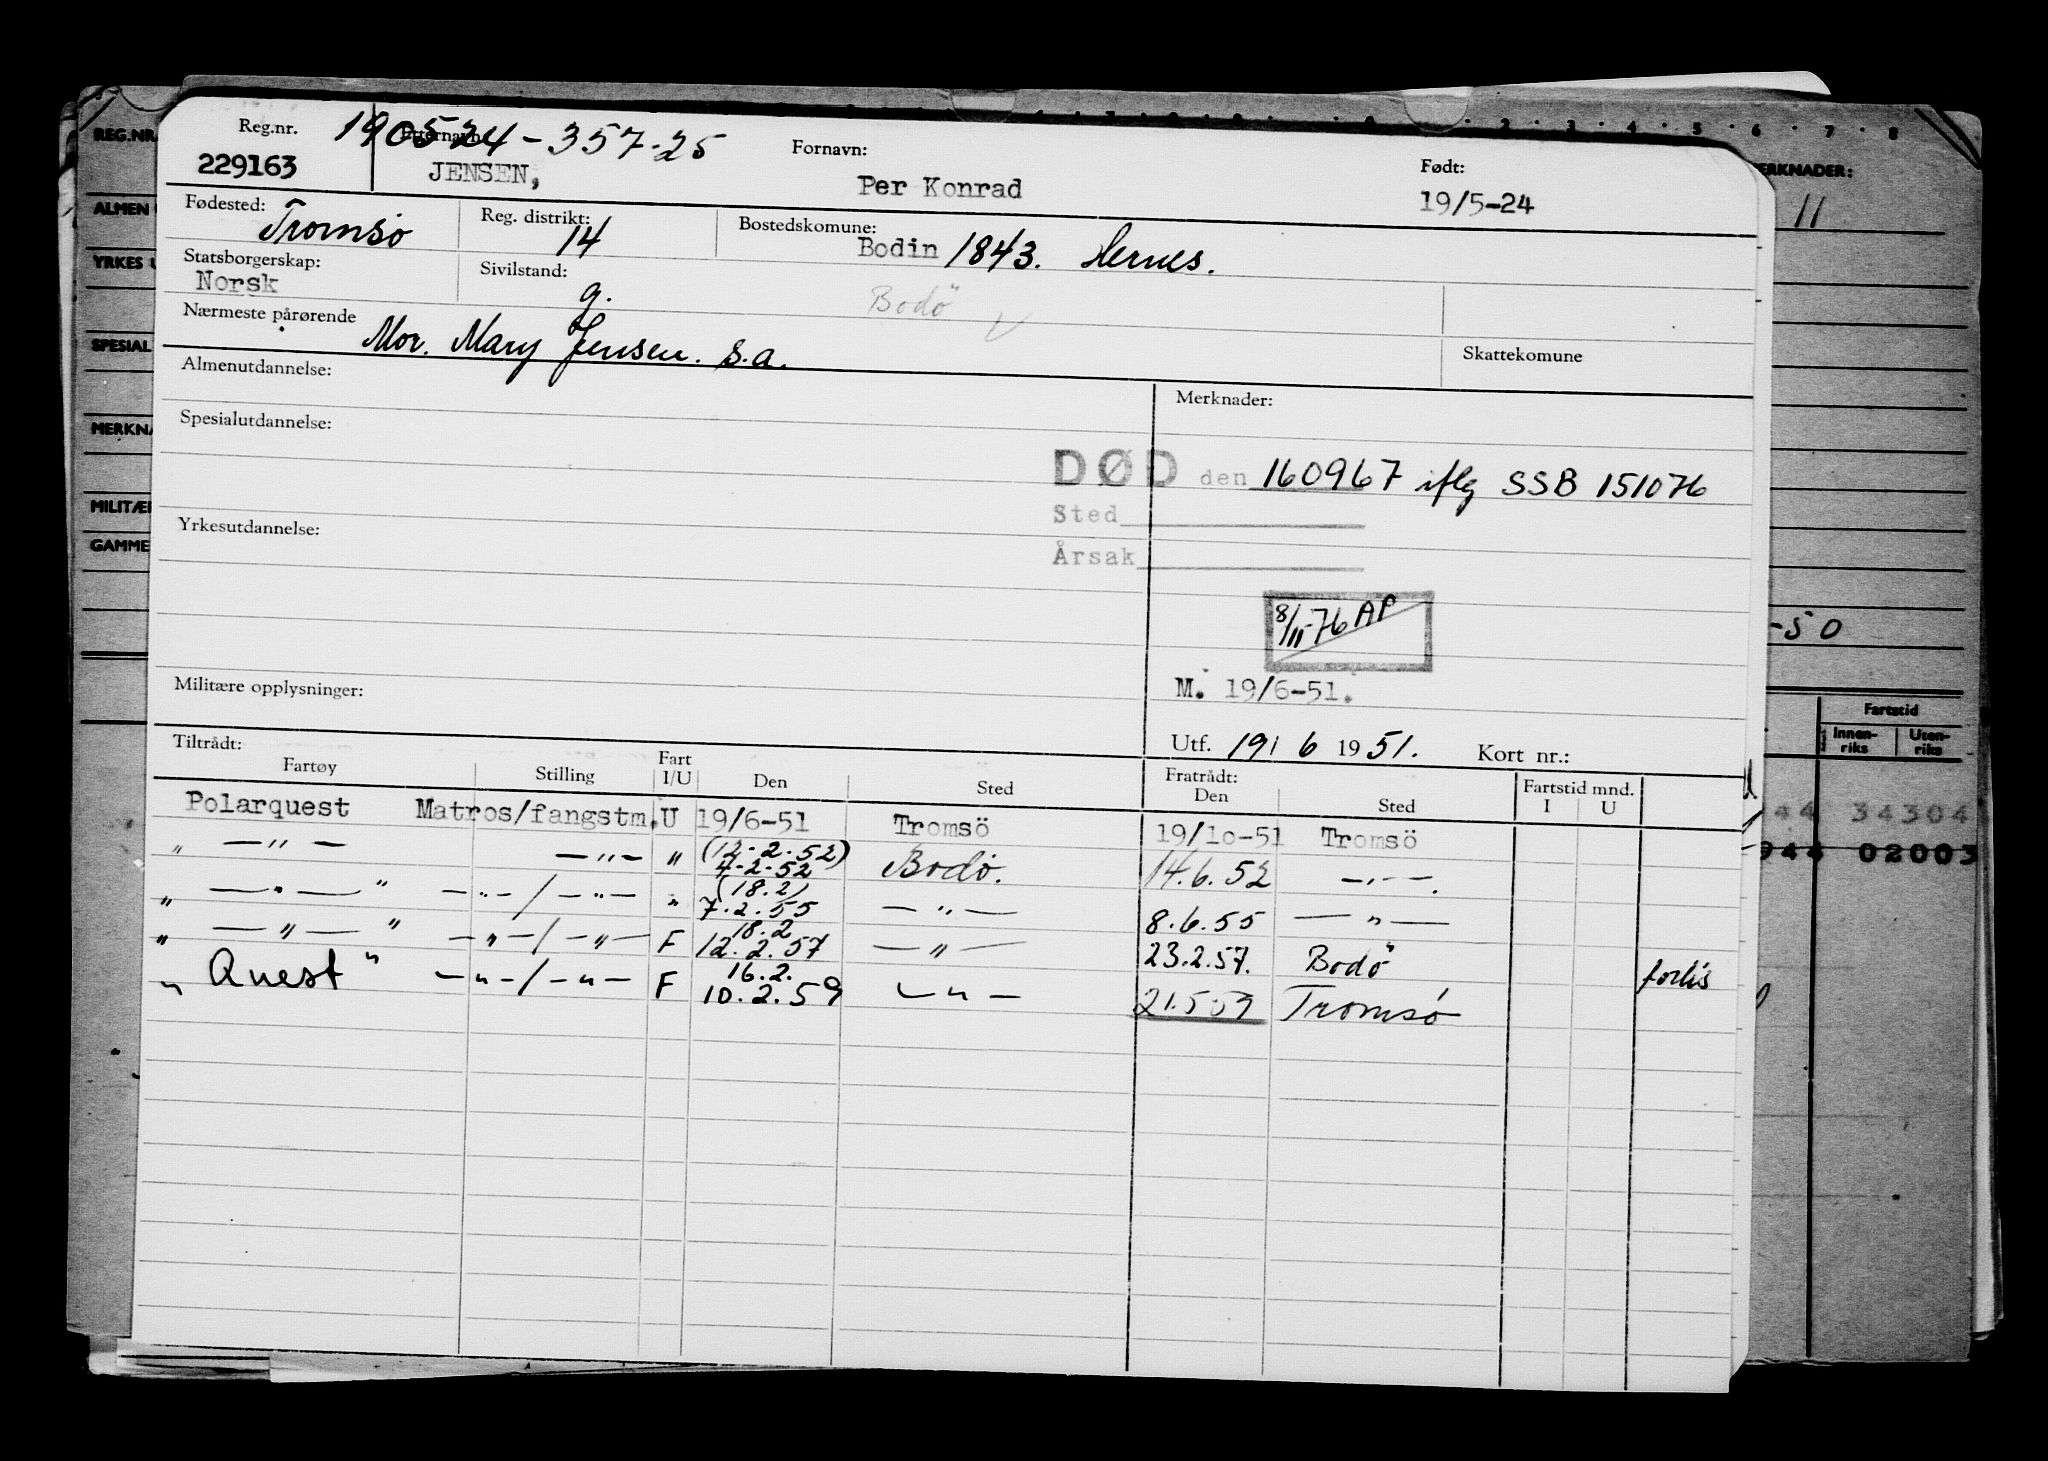 REG.NR.
ALMEN
YRKES U
SPESIAL
MERKNA
MILITÆR
GAMME
Reg.nr. Etternavn: Fornavn: Født:
190524-357-25
229163 JENSEN, Per Konrad 19/5-24
Fødested: Reg. distrikt: Bostedskomune:
Tromsø 14 Bodin 1843. Hernes.
Statsborgerskap: Sivilstand:
Norsk g. Bodö
Nærmeste pårørende
Mor. Mary Jensen. s.a. Skattekomune
Almenutdannelse: Merknader:
Spesialutdannelse:
DØD den 160967 iflg SSB 151076
Sted
Yrkesutdannelse:
Årsak
8/11-76 AP
Militære opplysninger: M. 19/6-51.
Utf. 19/6 1951. Kort nr.:
Tiltrådt: Fratrådt:
Fartøy Stilling Fart I/U Den Sted Den Sted Fartstid mnd. I U
Polarquest Matros/fangstm. U 19/6-51 Tromsö 19/10-51 Tromsö
" —"— —"— " (12.2.52) 4-2-52 Bodø. 14.6.52 —"—.
" —"— " —"—/—"— " (18.2) 7.2.55 —"— 8.6.55 —"—
" —"— " —"—/—"— F 18.2 12.2.57 —"— 23.2.57. Bodö forlis
" Quest " —"—/—"— F 16.2. 10.2.59 —"— 21.5.59 Tromsø
ERKNADER:
11
-50
Fartstid
Innen-riks Uten-riks
944 34304
944 02003